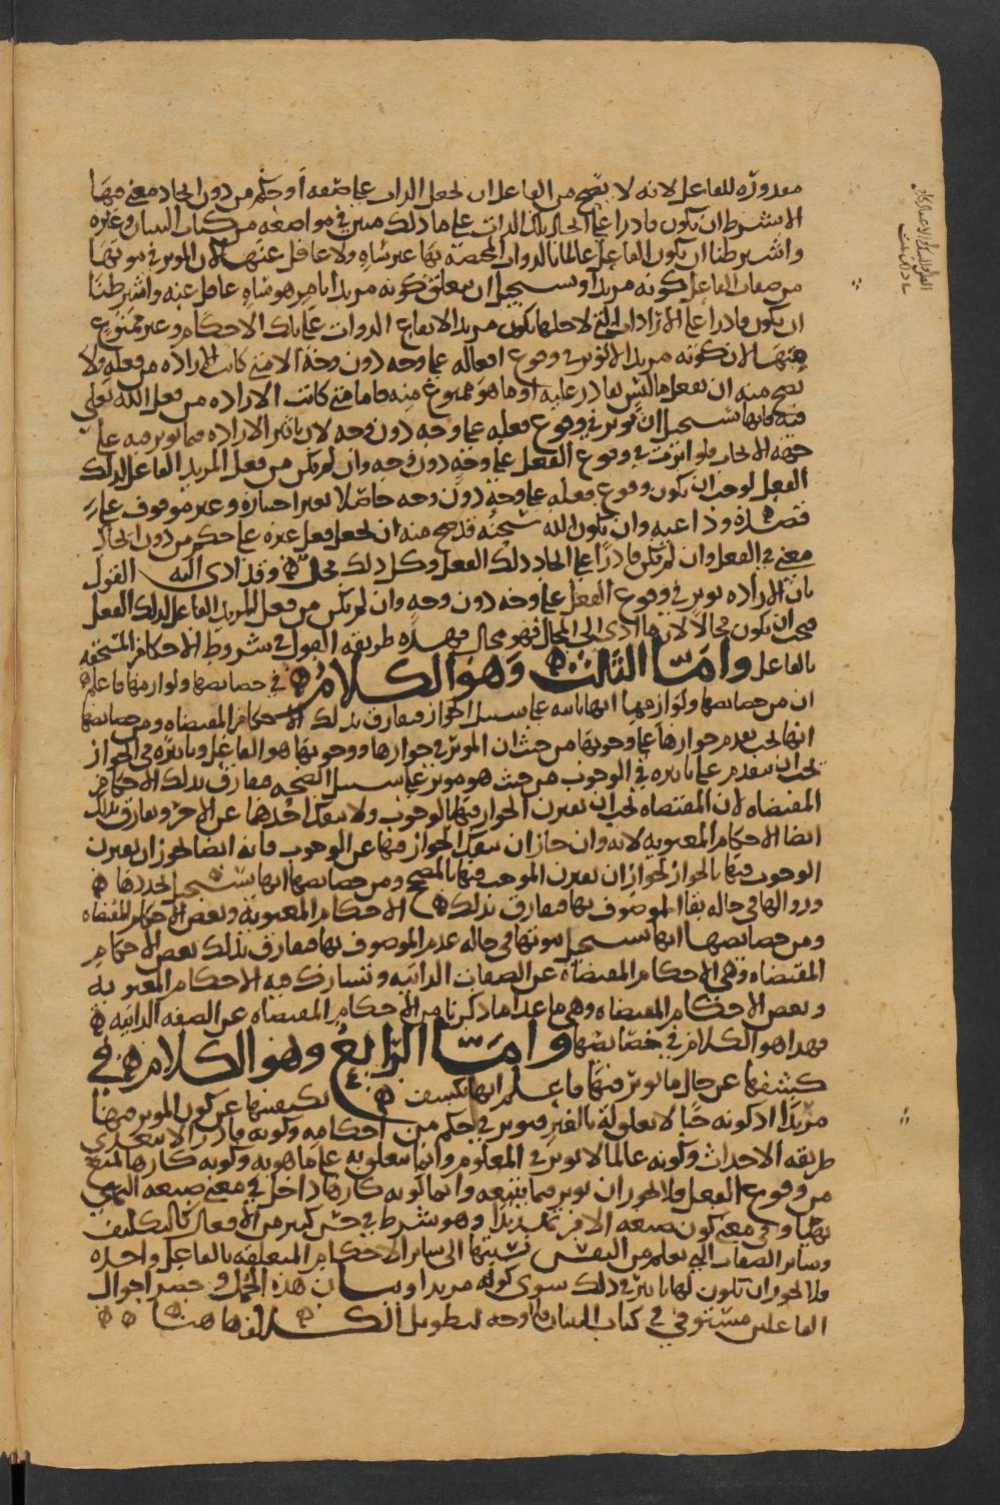 مقدوره للفاعل لانه لا يصح من الفاعل ان يجعل الذات على صفه أو حكم من دون ايجاد معنى فيها
الا بشرط ان يكون قادرا على ايجاد تلك الذات على ما ذلك مبين في مواضعه من كتاب البيان وغيره
واشترطنا ان يكون الفاعل عالما بالذوات المختصة بها غير ساهٍ ولا غافل عنها لان الموثر في ثبوتها
من صفات الفاعل كونه مريدا ويستحيل ان يتعلق كونه مريدا بامر هو ساهٍ غافل عنه واشترطنا
ان يكون قادرا على الارادات التي لاجلها يكون مريدا لايقاع الذوات على تلك الاحكام وغير ممنوع
منها لان كونه مريدا لا يوثر في وقوع افعاله على وجه دون وجه الا متى كانت الاراده من فعله ولا
يصح منه ان يفعل ما ليس بقادر عليه او ما هو ممنوع منه فاما متى كانت الاراده من فعل الله تعلى
فيه فانها تستحيل ان توثر في وقوع فعله على وجه دون وجه لان تاثير الاراده فيما توثر فيه على
جهة الايجاب فلو اثرت في وقوع الفعل على وجهٍ دون وجه وان لم تكن من فعل المريد الفاعل لذلك
الفعل لوجب ان يكون وقوع فعله على وجهٍ دون وجه حاصلا بغير اختياره وغير موقوف على
قصده ودواعيه وان يكون الله سبحنه قد صح منه ان يجعل فعل غيره على حكم من دون ايجاد
معنى في الفعل وان لم يكن قادرا على ايجاد ذلك الفعل وكل ذلك محال وقد ادى اليه القول
بان الاراده توثر في وقوع الفعل على وجه دون وجهٍ وان لم تكن من فعل المريد الفاعل لذلك الفعل
فيجب ان يكون محالا لان ما ادى الى المحال فهو محال فهذه طريقه القول في شروط الاحكام المستحقه
بالفاعل وأمّا الثالث وهو الكلام في خصايصها ولوازمها فاعلم
ان من خصايصها ولوازمها انها ثابته على سبيل الجواز فتفارق بذلك الاحكام المقتضاه ومن خصايصها
انها يجب تقدم جوازها على وجوبها من حيث ان الموثر في جوازها ووجوبها هو الفاعل وتاثيره في الجواز
يجب ان يتقدم على تاثيره في الوجوب من حيث هو موثر على سبيل الصحه مفارق بذلك الاحكام
المقتضاه لان المقتضاه يجب ان يقترن الجواز فيها بالوجوب ولا ينفك احدهما عن الاخر وتفارق بذلك
ايضا الاحكام المعنويه لانه وان جاز ان ينفك الجواز فيها عن الوجوب فانه ايضا يجوز ان يقترن
الوجوب فيها بالجواز لجواز ان يقترن الموجب فيها بالمصحح ومن خصايصها انها تستحيل تجددها
وزوالها في حاله بقا الموصوف بها فتفارق بذلك الاحكام المعنوية وبعض الاحكام المقتضاه
ومن خصايصها انها يستحيل ثبوتها في حاله عدم الموصوف بها فتفارق بذلك بعض الاحكام
المقتضاه وهي الاحكام المقتضاة عن الصفات الذاتيه وتشارك فيه الاحكام المعنويه
وبعض الاحكام المقتضاه وهي ما عدا ما ذكرنا من الاحكام المقتضاه عن الصفه الذاتيه
فهذا هو الكلام في خصايصها وأمّا الرابع وهو الكلام في
كشفها عن حال ما يوثر فيها فاعلم انها تكشف بكيفيتها عن كون الموثر فيها
مريدا اذ كونه حيا لا تعلق له بالغير فيوثر في حكم من احكامه وكونه قادرا لا يتعدى
طريقه الاحداث وكونه عالما لا يوثر في المعلوم وانما يتعلق به على ما هو به وكونه كارها يمنع
من وقوع الفعل فلا يجوز ان يوثر فيما يتبعه وانما كونه كارها داخل في معنى صيغه النهي
نهيا وفي معنى كون صيغه الامر تهديدا وهو شرط في حسن كثير من الافعال كالتكليف
وساير الصفات التي تعلم من النفس نسبتها الى ساير الاحكام المتعلقه بالفاعل واحده
فلا يجوز ان يكون لها تاثير في ذلك سوى كونه مريدا وبيان هذه الجمل وحصر احوال
الفاعلين مستوفى في كتاب البيان فلا وجه لتطويل الكلام هاهنا